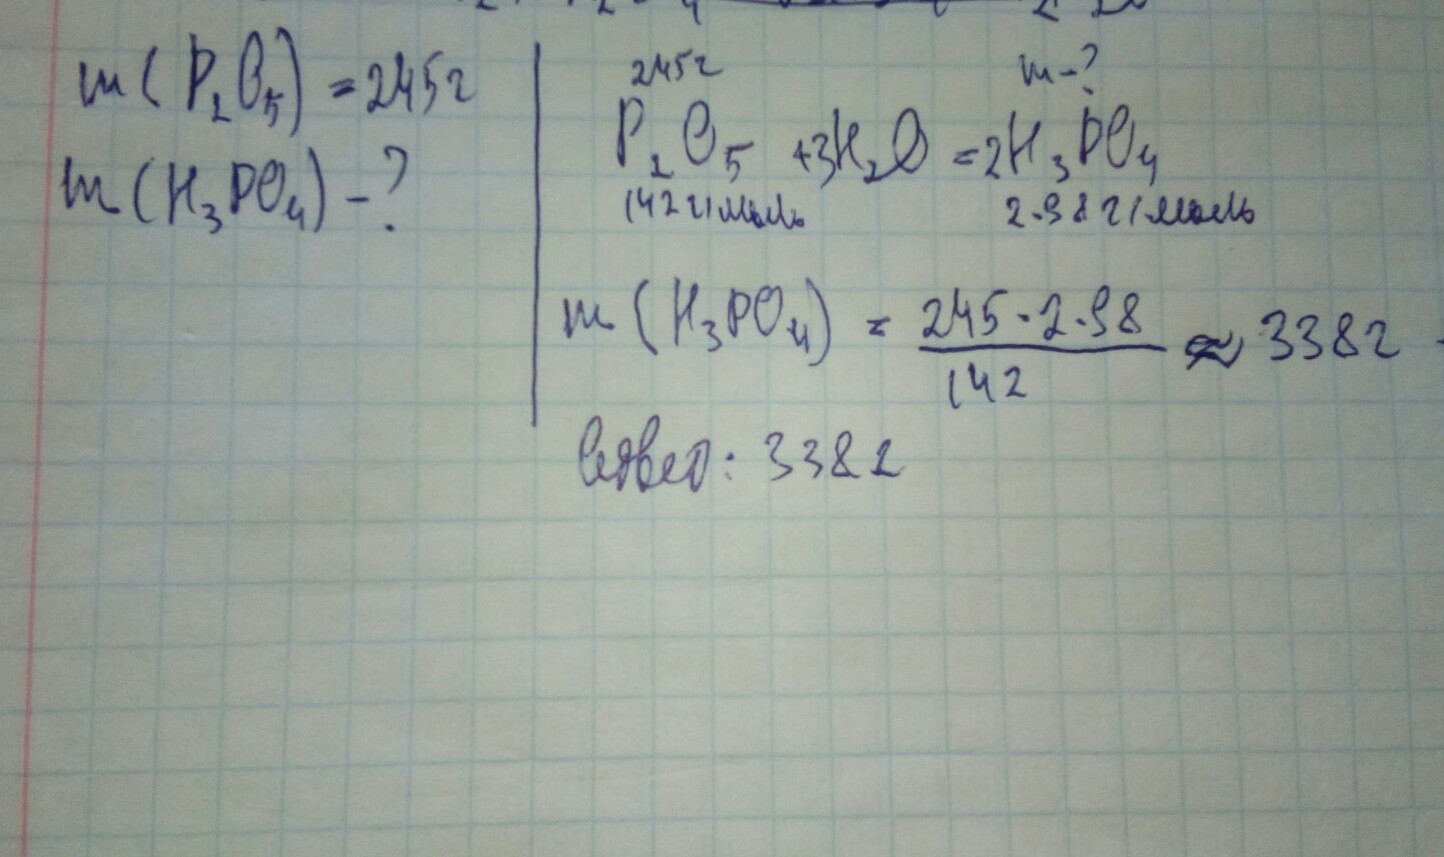 m(P₂O₅) = 245г
m(H₃PO₄) - ?
245г m-?
P₂O₅ + 3H₂O = 2H₃PO₄
142 г/моль 2·98 г/моль
m(H₃PO₄) = 245·2·98 / 142 ≈ 338г
Ответ: 338г